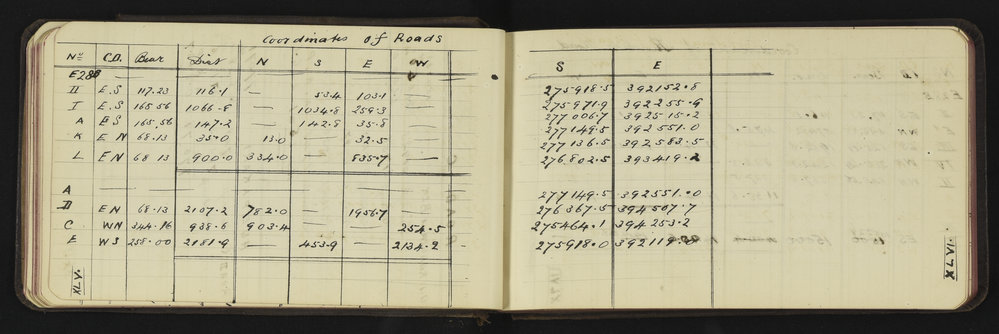 Coordinates of Roads
No C.D. Bear Dist N S E W
S E
E288
II E.S 117.23 116.1 — 53.4 103.1 — 275918.5 392152.8
I E.S 165.56 1066.8 — 1034.8 259.3 — 275971.9 392255.9
A E S 165.56 147.2 — 142.8 35.8 — 277006.7 392515.2
K E N 68.13 35.0 13.0 32.5 277149.5 392551.0
L E N 68.13 900.0 334.0 — 835.7 — 277136.5 392583.5
276802.5 393419.2
A — — — — 277149.5 392551.0
B EN 68.13 2107.2 782.0 — 1956.7 276367.5 394507.7
C WN 344.16 938.6 903.4 254.5 275464.1 394253.2
E WS 258.00 2181.9 — 453.9 — 2134.2 275918.0
XLV.
XLVI.